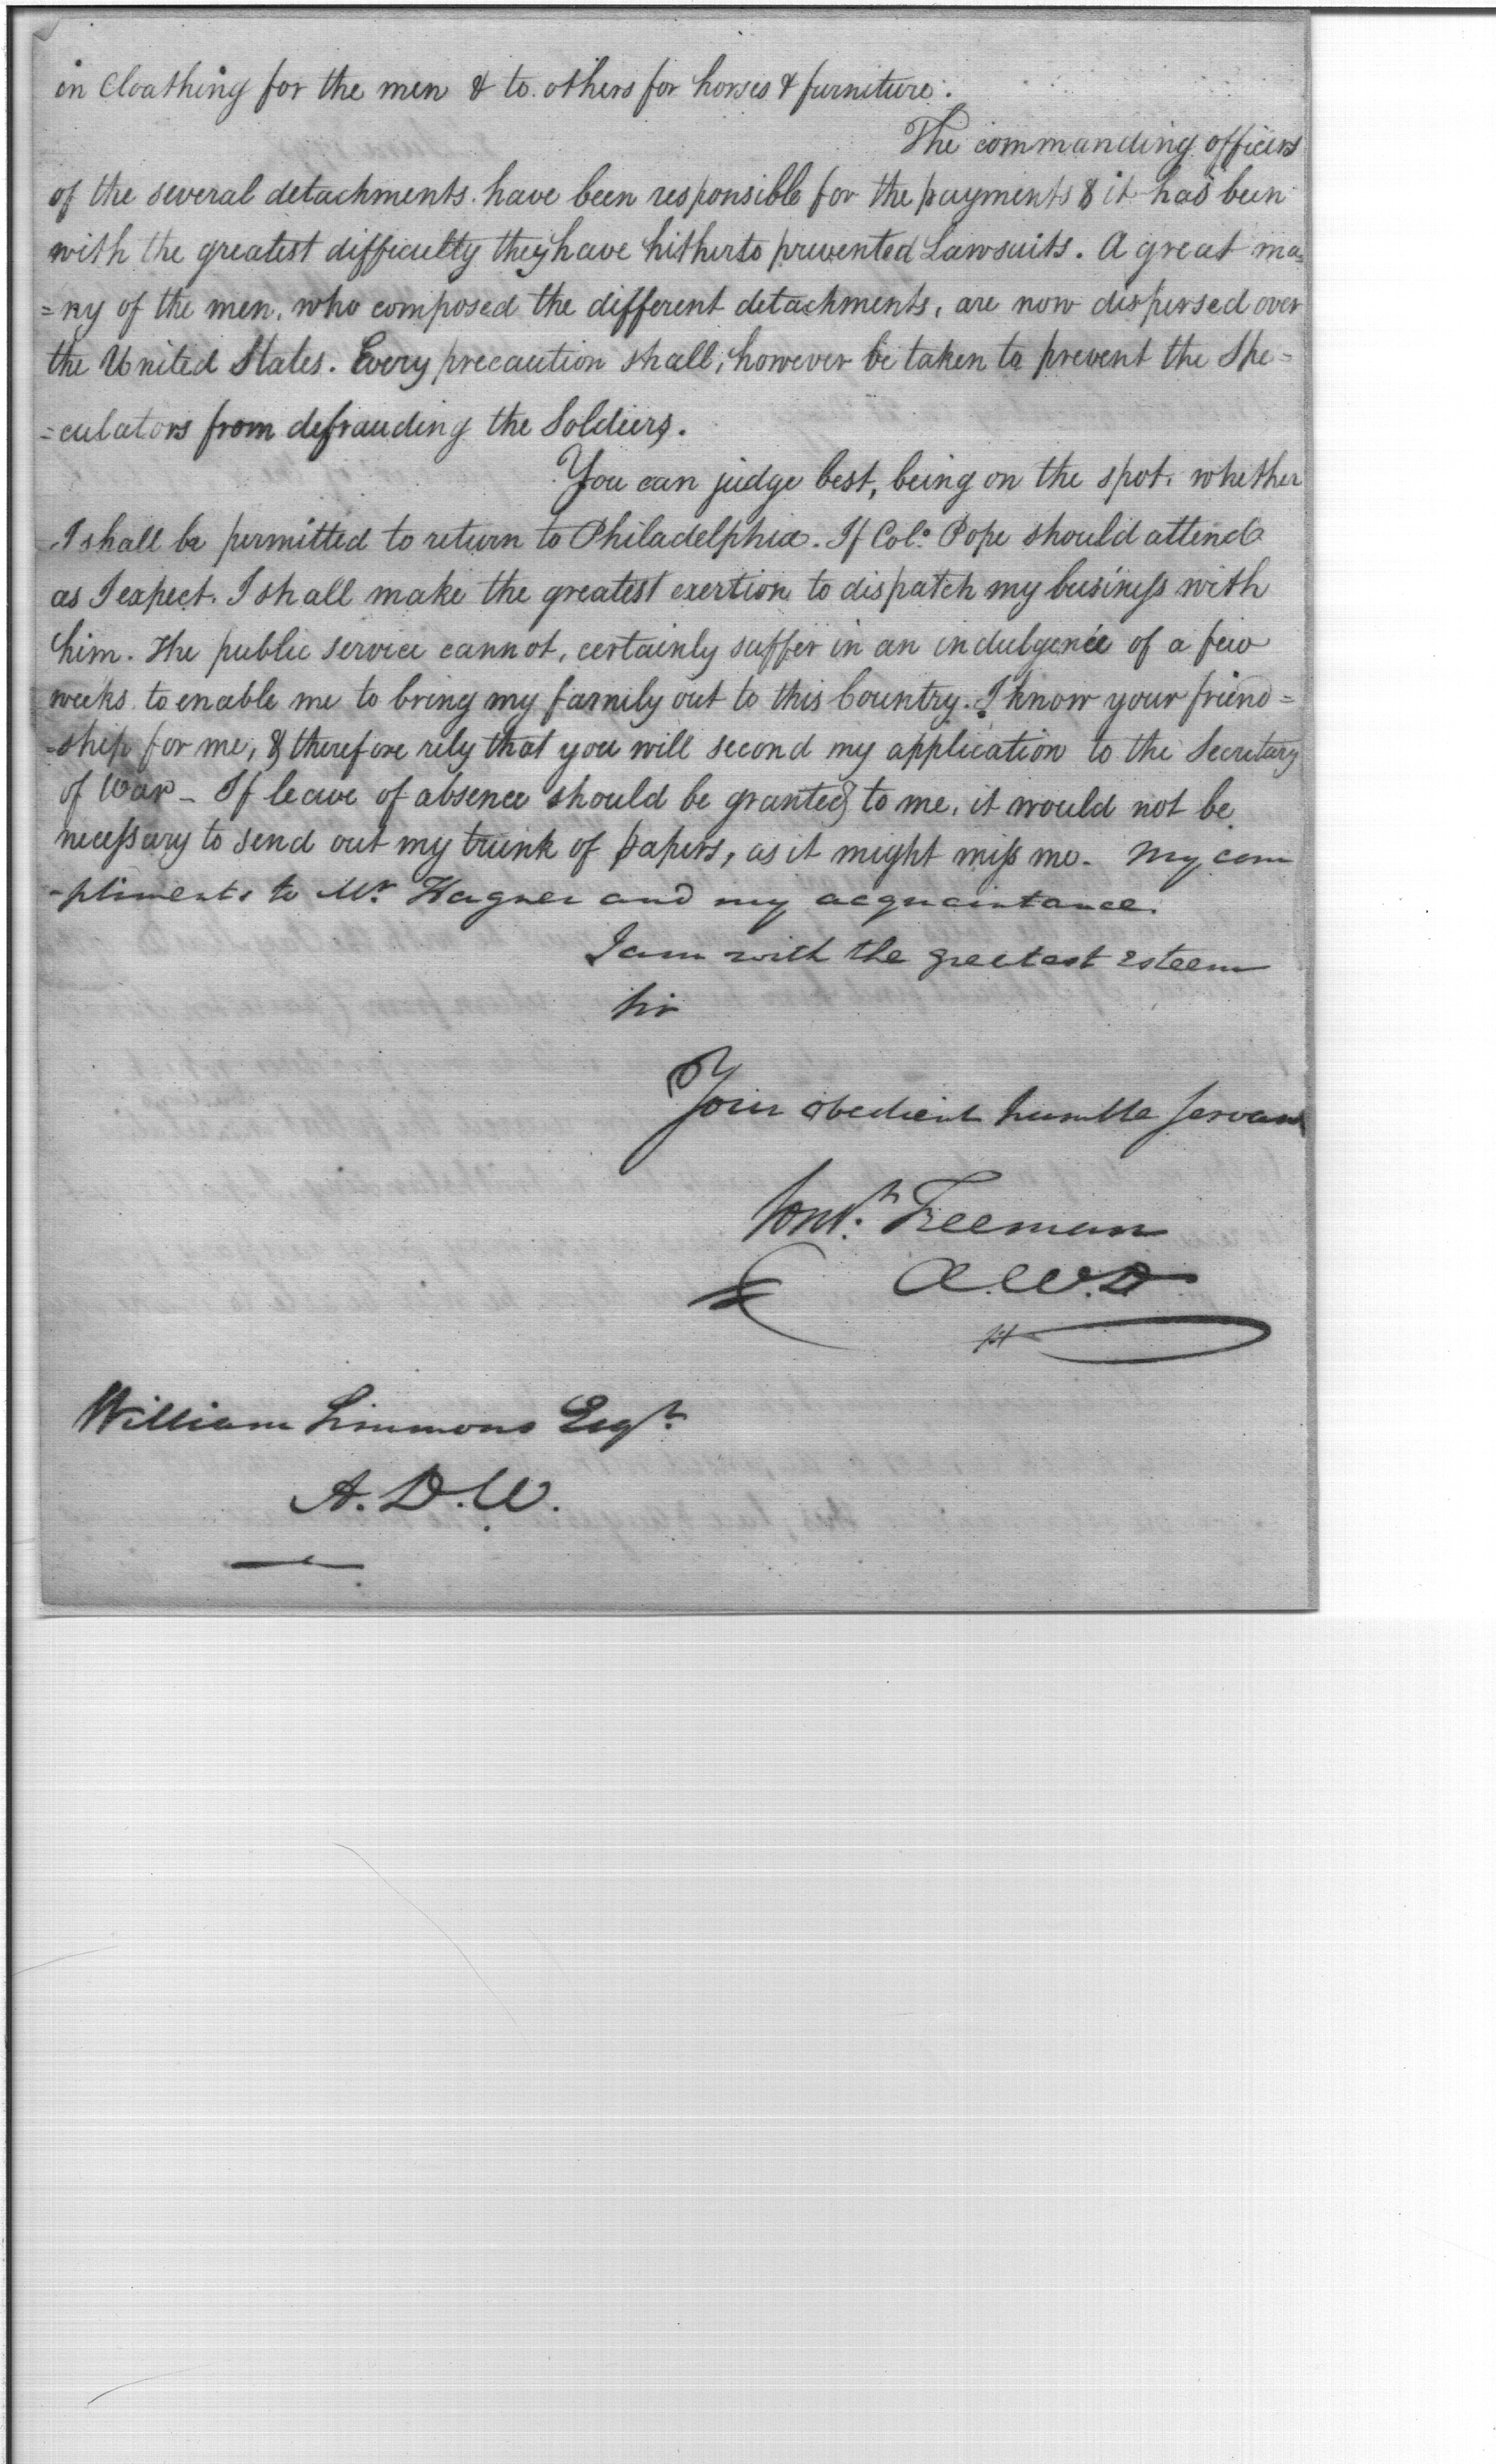 in Cloathing for the men & to others for horses & furniture.
The commanding officers
of the several detachments have been responsible for the payments & it has been
with the greatest difficulty they have hitherto prevented Lawsuits. A great ma=
=ny of the men, who composed the different detachments, are now dispersed over
the United States. Every precaution shall, however be taken to prevent the Spe=
=culators from defrauding the Soldiers.
You can judge best, being on the spot, whether
I shall be permitted to return to Philadelphia. If Colo. Pope should attend
as I expect. I shall make the greatest exertion to dispatch my business with
him. The public service cannot, certainly suffer in an indulgence of a few
weeks to enable me to bring my family out to this Country. I know your friend=
=ship for me, & therefore rely that you will second my application to the Secretary
of War - If leave of absence should be granted to me, it would not be
necessary to send out my trunk of papers, as it might miss me. My com
-pliments to Mr. Hagner and my acquaintance.
I am with the greatest esteem
Sir
Your obedient humble servant
Freeman
A.W.D
William Simmons Esqr.
A.D.W.